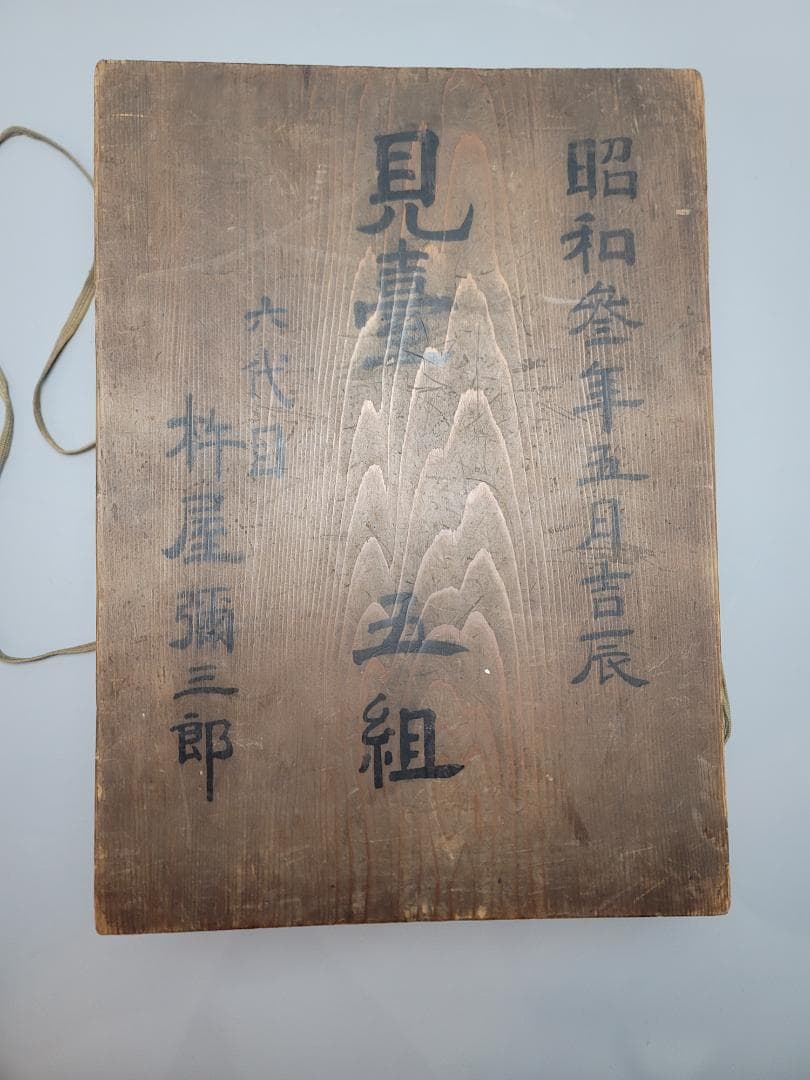 昭和參年五月吉辰
見臺 五組
六代目
杵屋彌三郎